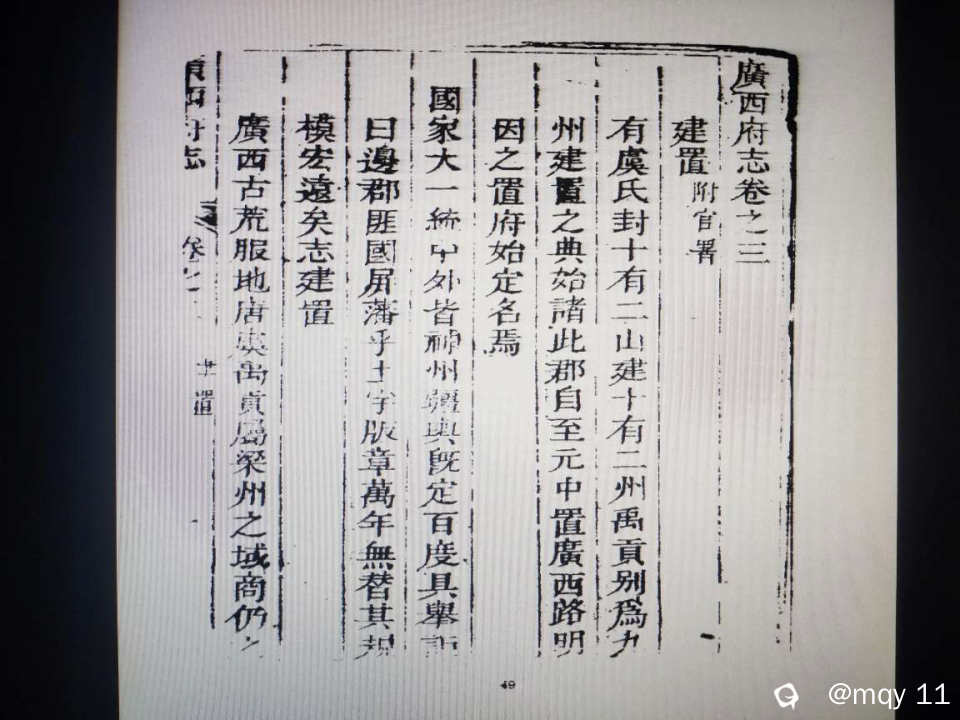 廣西府志卷之三
建置附官署
有虞氏封十有二山建十有二州禹貢别爲九
州建置之典始諸此郡自至元中置廣西路明
因之置府始定名焉
國家大一統中外皆神州疆輿既定百度具舉詎
曰邊郡匪國屏藩乎土宇版章萬年無替其規
模宏遠矣志建置
廣西古荒服地唐虞禹貢屬梁州之域商仍之
廣西府志
建置
49
@mqy 11